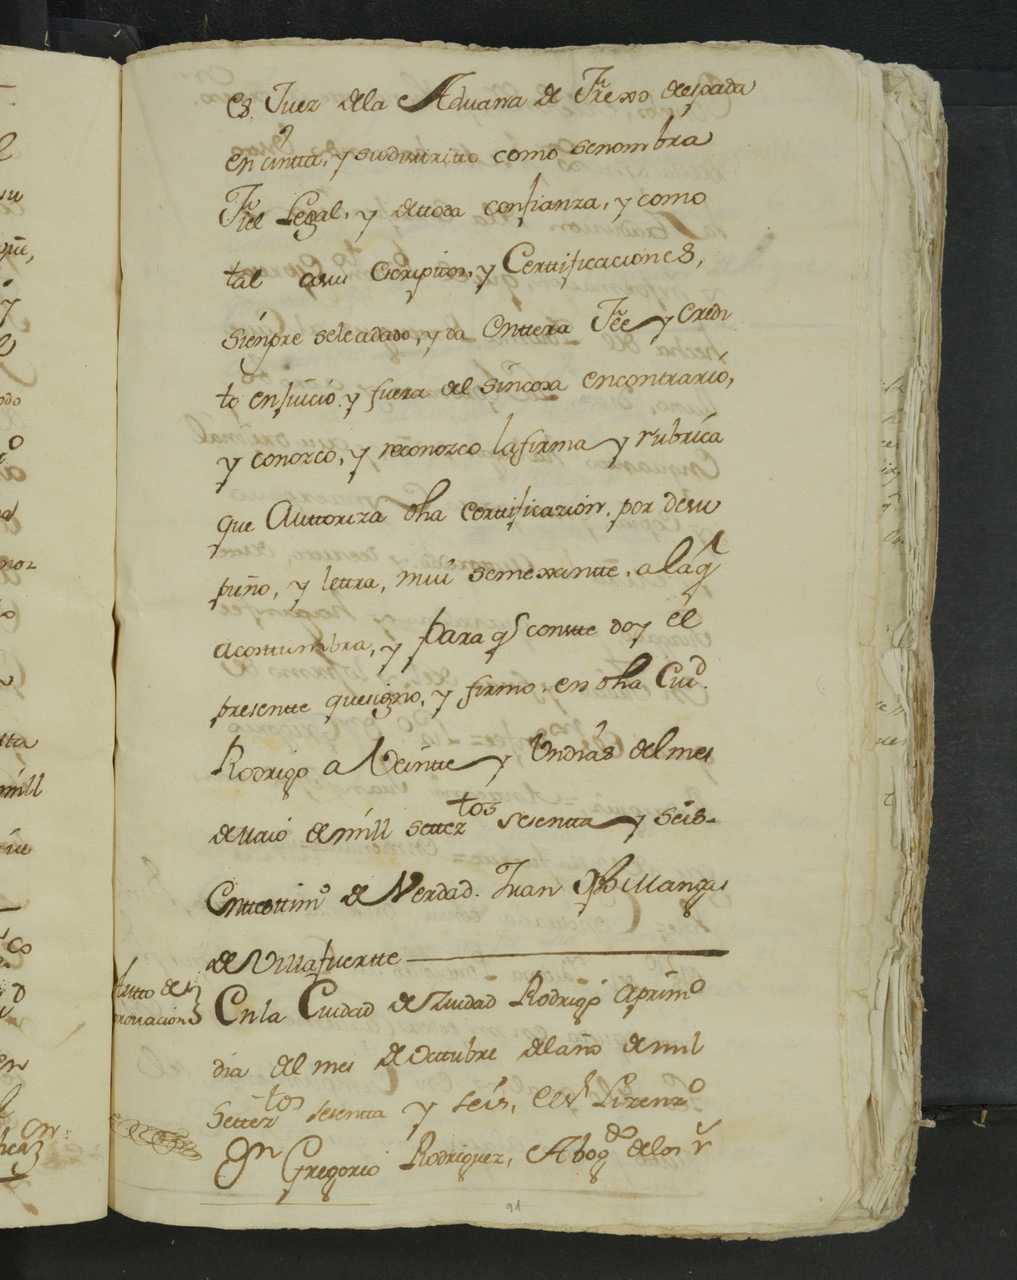 es Juez dela Aduana de Frexno de espada
en cintta, y sudistritto como senombra
Fiel Legal, y dettoda confianza, y como
tal asus Escriptos, y Certtificaciones,
siénpre seleadado, y da Enttera Feé y Credi
to enjuicio y fuera del sin cosa encontrario,
y conozco, y reconozco lafirma y rubrica
que Auttoriza dha certtificazión, por desu
puño, y lettra, mui semexantte, a la q
acostumbra, y para q conste doy él
presentte que signo, y firmo, en dha Ciud.
Rodrigo a Veintte y Undias delmes
de Maio de mill settez.tos sesentta y séis.
Enttesttim.º de Verdad. Juan Xptl Mangas
de Villafuertte
Autto de
provacion
Enla Ciudad de Ziudad Rodrigo aprim.º
dia del mes de Octtubre delaño de mil
settez.tos sesentta y séis, el S.r Lizenz.do
Dn Gregorio Rodriguez, Abog.do delos R.s
91